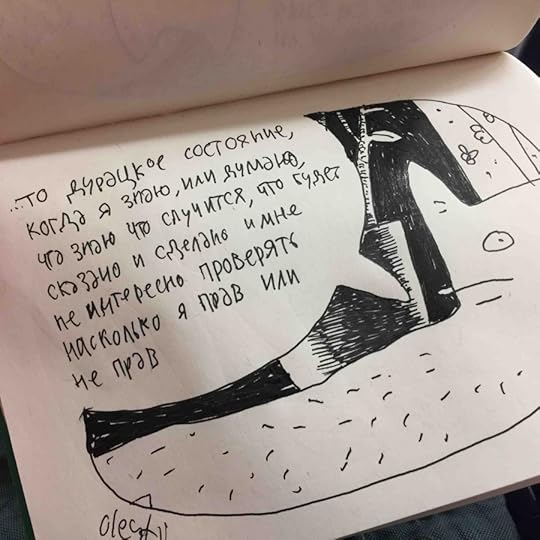 ...то дурацкое состояние,
когда я знаю, или думаю,
что знаю что случится, что будет
сказано и сделано и мне
не интересно проверять
насколько я прав или
не прав